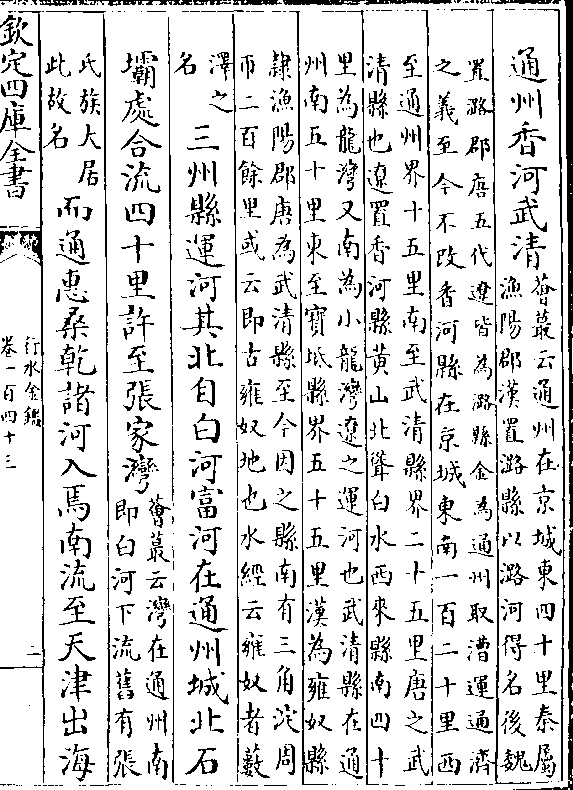 通州香河武清薈蕞云通州在京城東四十里秦屬
漁陽郡漢置潞縣以潞河得名後魏
置潞郡唐五代遼皆為潞縣金為通州取漕運通濟
之義至今不改香河縣在京城東南一百二十里西
至通州界十五里南至武清縣界二十五里唐之武
清縣也遼置香河縣黃山北聳白水西來縣南四十
里為龍灣又南為小龍灣遼之運河也武清縣在通
州南五十里東至寶坻縣界五十五里漢為雍奴縣
隸漁陽郡唐為武清縣至今因之縣南有三角淀周
帀二百餘里或云即古雍奴地也水經云雍奴者藪
澤之
名
三州縣運河其北自白河富河在通州城北石
壩處合流四十里許至張家灣薈蕞云灣在通州南
即白河下流舊有張
氏族大居
此故名
而通惠桑乾諸河入焉南流至天津出海
欽定四庫全書
行水金鑑
卷一百四十三
二